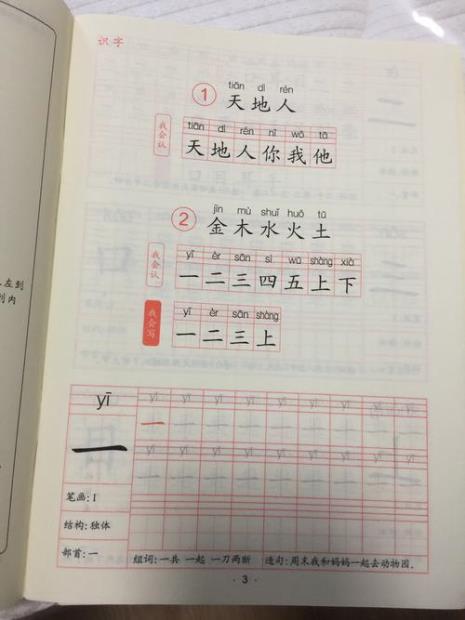 识字
tiān dì rén
1 天地人
我会认
tiān dì rén nǐ wǒ tā
天地人你我他
jīn mù shuǐ huǒ tǔ
2 金木水火土
我会认
yī èr sān sì wǔ shàng xià
一二三四五上下
我会写
yī èr sān shàng
一二三上
yī
一
yī yī yī yī yī yī yī yī
yī yī yī yī yī yī yī yī
笔画:1
结构:独体
部首:一
组词:一共 一起 一刀两断
造句:周末我和妈妈一起去动物园.
· 3 ·
左到
列内